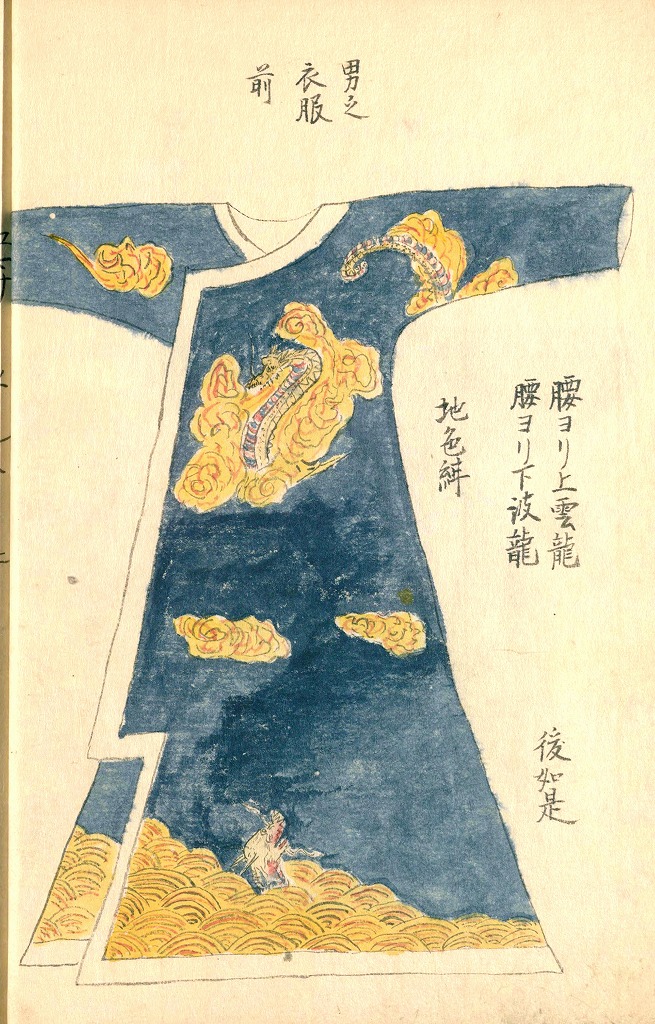 男之
衣服
前
腰ヨリ上雲龍
腰ヨリ下波龍
地色紺
後如是